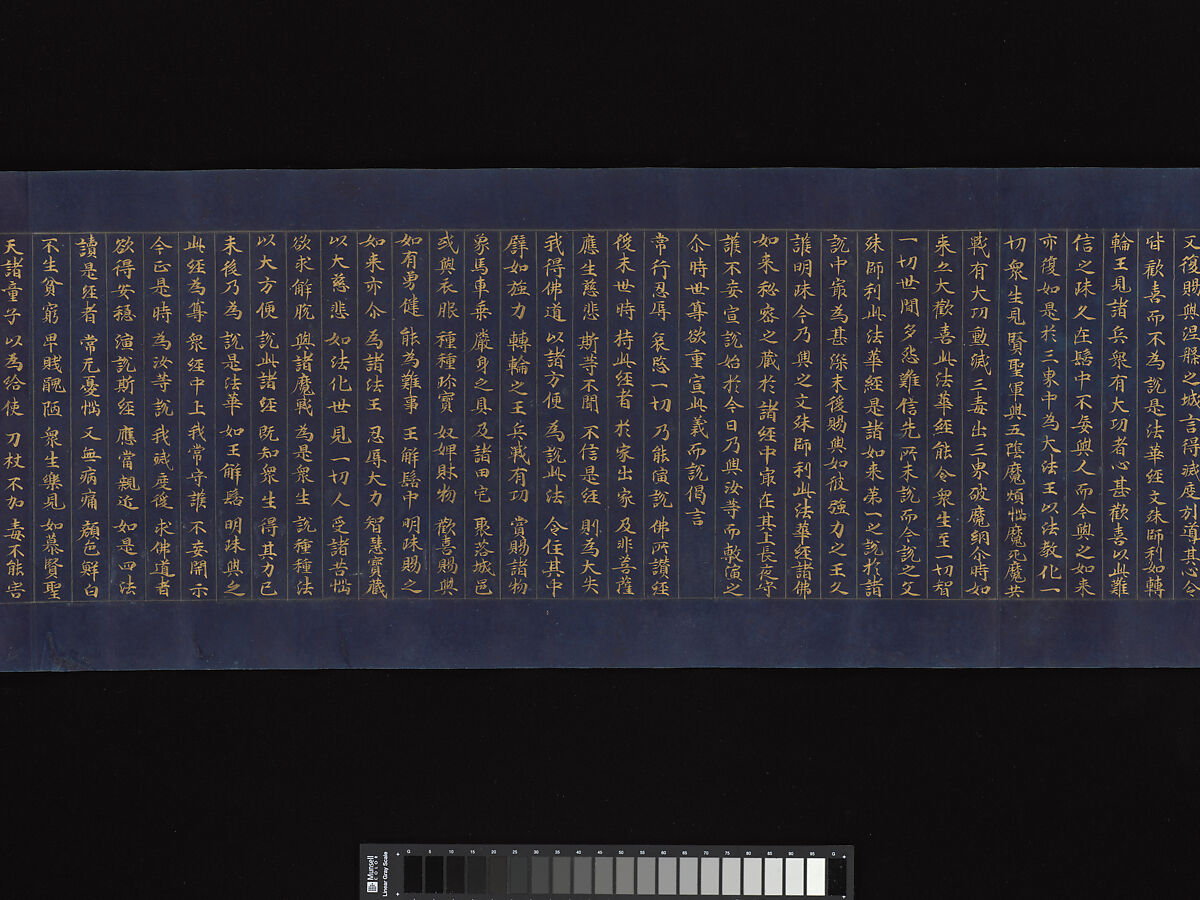 又復賜與涅槃之城言得滅度引導其心令
皆歡喜而不為說是法華經文殊師利如轉
輪王見諸兵衆有大功者心甚歡喜以此難
信之珠久在髻中不妄與人而今與之如来
亦復如是於三界中為大法王以法教化一
切衆生見賢聖軍與五陰魔煩惱魔死魔共
戰有大功勳滅三毒出三界破魔網尒時如
来亦大歡喜此法華經能令衆生至一切智
一切世間多怨難信先所未說而今說之文
殊師利此法華經是諸如来第一之說於諸
說中冣為甚深末後賜與如彼強力之王久
護明珠今乃與之文殊師利此法華經諸佛
如来秘密之藏於諸經中冣在其上長夜守
護不妄宣說始於今日乃與汝等而敷演之
尒時世尊欲重宣此義而說偈言
常行忍辱 哀愍一切 乃能演說 佛所讃經
後末世時 持此經者 於家出家 及非菩薩
應生慈悲 斯等不聞 不信是經 則為大失
我得佛道 以諸方便 為說此法 令住其中
譬如強力 轉輪之王 兵戰有功 賞賜諸物
象馬車乗 嚴身之具 及諸田宅 聚落城邑
或與衣服 種種珎寶 奴婢財物 歡喜賜與
如有勇健 能為難事 王解髻中 明珠賜之
如来亦尒 為諸法王 忍辱大力 智慧寶藏
以大慈悲 如法化世 見一切人 受諸苦惱
欲求解脫 與諸魔戰 為是衆生 說種種法
以大方便 說此諸經 既知衆生 得其力已
末後乃為 說是法華 如王解髻 明珠與之
此經為尊 衆經中上 我常守護 不妄開示
今正是時 為汝等說 我滅度後 求佛道者
欲得安穩 演說斯經 應當親近 如是四法
讀是經者 常无憂惱 又無病痛 顔色鮮白
不生貧窮 卑賤醜陋 衆生樂見 如慕賢聖
天諸童子 以為給使 刀杖不加 毒不能害
Munsell
COLOR
Linear Gray Scale
0 5 10 15 20 25 30 35 40 45 50 55 60 65 70 75 80 85 90 95